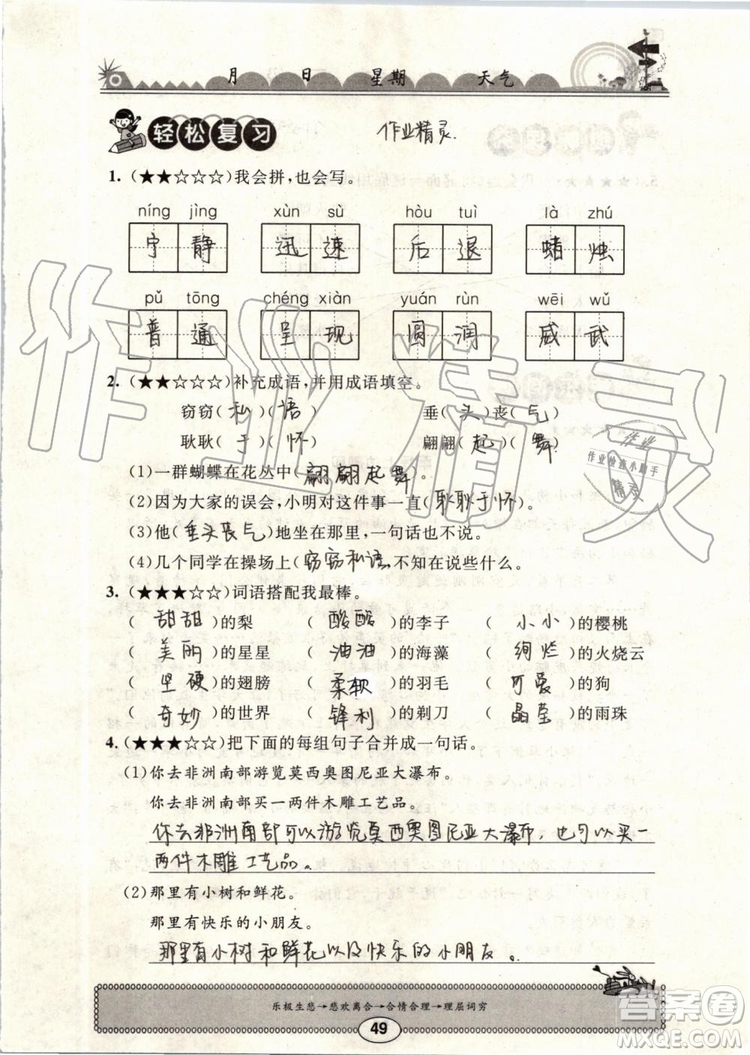 月 日 星期 天气
轻松复习 作业精灵.
1.(★★☆☆☆)我会拼,也会写。
níng jìng xùn sù hòu tuì là zhú
宁静 迅速 后退 蜡烛
pǔ tōng chéng xiàn yuán rùn wēi wǔ
普通 呈现 圆润 威武
2.(★★☆☆☆)补充成语,并用成语填空。
窃窃(私)(语) 垂(头)丧(气)
耿耿(于)(怀) 翩翩(起)(舞)
(1)一群蝴蝶在花丛中(翩翩起舞)。
(2)因为大家的误会,小明对这件事一直(耿耿于怀)。
(3)他(垂头丧气)地坐在那里,一句话也不说。
(4)几个同学在操场上(窃窃私语),不知在说些什么。
3.(★★★☆☆)词语搭配我最棒。
(甜甜)的梨 (酸酸)的李子 (小小)的樱桃
(美丽)的星星 (油油)的海藻 (绚烂)的火烧云
(坚硬)的翅膀 (柔软)的羽毛 (可爱)的狗
(奇妙)的世界 (锋利)的剃刀 (晶莹)的雨珠
4.(★★★☆☆)把下面的每组句子合并成一句话。
(1)你去非洲南部游览莫西奥图尼亚大瀑布。
你去非洲南部买一两件木雕工艺品。
你去非洲南部可以游览莫西奥图尼亚大瀑布,也可以买一
两件木雕工艺品。
(2)那里有小树和鲜花。
那里有快乐的小朋友。
那里有小树和鲜花以及快乐的小朋友。
乐极生悲→悲欢离合→合情合理→理屈词穷
49
作业精灵
作业
作业检查小助手
精灵
答案圈